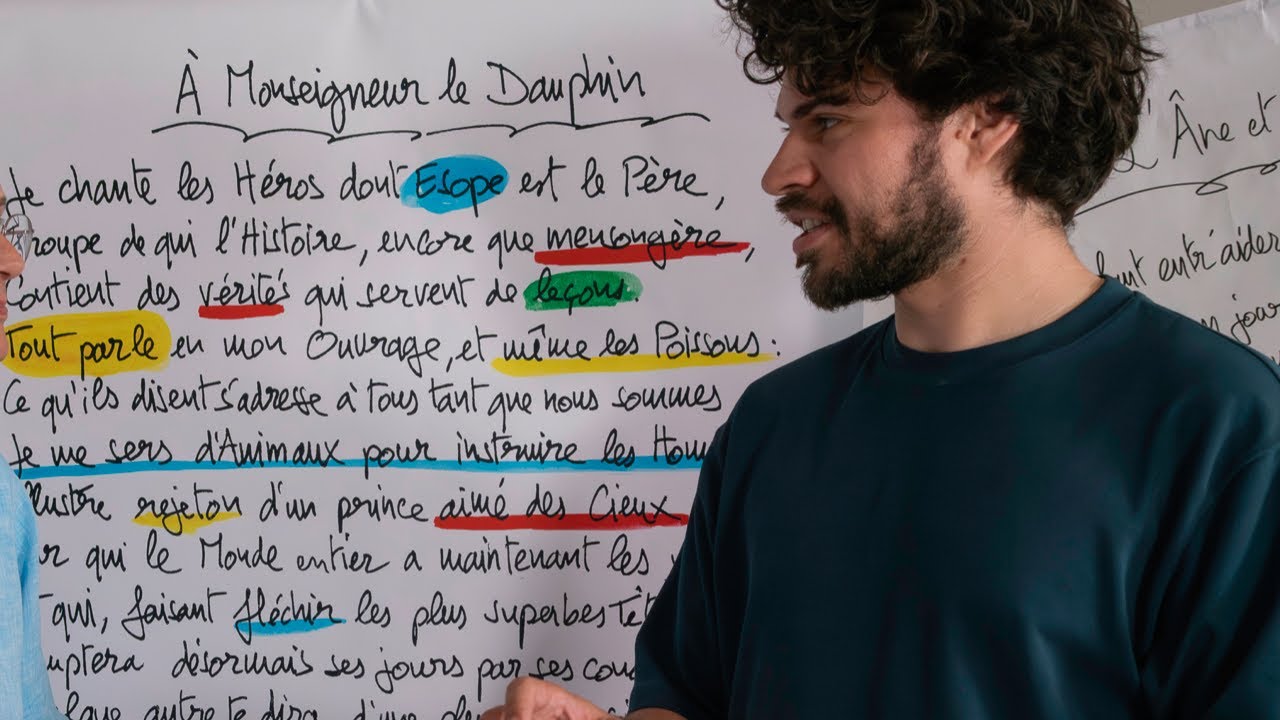 À Monseigneur le Dauphin
Je chante les Héros dont Esope est le Père,
roupe de qui l'Histoire, encore que mensongère,
Contient des vérités qui servent de leçons.
Tout parle en mon Ouvrage, et même les Poissons:
Ce qu'ils disent s'adresse à tous tant que nous sommes
Je me sers d'Animaux pour instruire les Hom
llustre rejeton d'un prince aimé des Cieux
r qui le Monde entier a maintenant les
qui, faisant fléchir les plus superbes Tê
mptera désormais ses jours par ses con
lque autre te dira d'une
L'Âne et
faut entr'aider
un jour